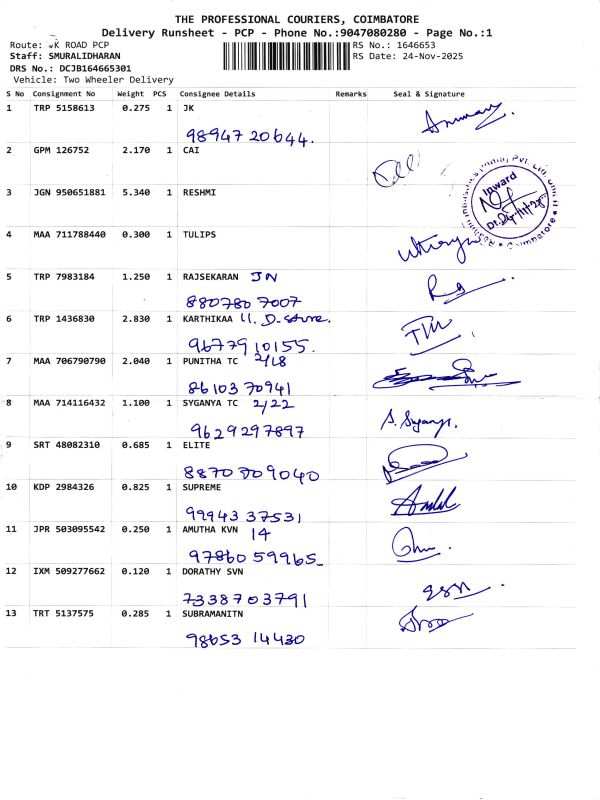 THE PROFESSIONAL COURIERS, COIMBATORE
Delivery Runsheet - PCP - Phone No.:9047080280 - Page No.:1
Route: K ROAD PCP
RS No.: 1646653
Staff: SMURALIDHARAN
RS Date: 24-Nov-2025
DRS No.: DCJB164665301
Vehicle: Two Wheeler Delivery
S No Consignment No Weight PCS Consignee Details Remarks Seal & Signature
1 TRP 5158613 0.275 1 JK
98947 20644.
2 GPM 126752 2.170 1 CAI
3 JGN 950651881 5.340 1 RESHMI
Inward
Coimbatore
4 MAA 711788440 0.300 1 TULIPS
5 TRP 7983184 1.250 1 RAJSEKARAN JN
880780 7007
6 TRP 1436830 2.830 1 KARTHIKAA
96779 10155.
7 MAA 706790790 2.040 1 PUNITHA TC 2/18
86103 70941
8 MAA 714116432 1.100 1 SYGANYA TC 2/22
9629297897
9 SRT 48082310 0.685 1 ELITE
8870809040
10 KDP 2984326 0.825 1 SUPREME
99943 37531
11 JPR 503095542 0.250 1 AMUTHA KVN 14
97860 59965
12 IXM 509277662 0.120 1 DORATHY SVN
7338703791
13 TRT 5137575 0.285 1 SUBRAMANITN
98653 14430